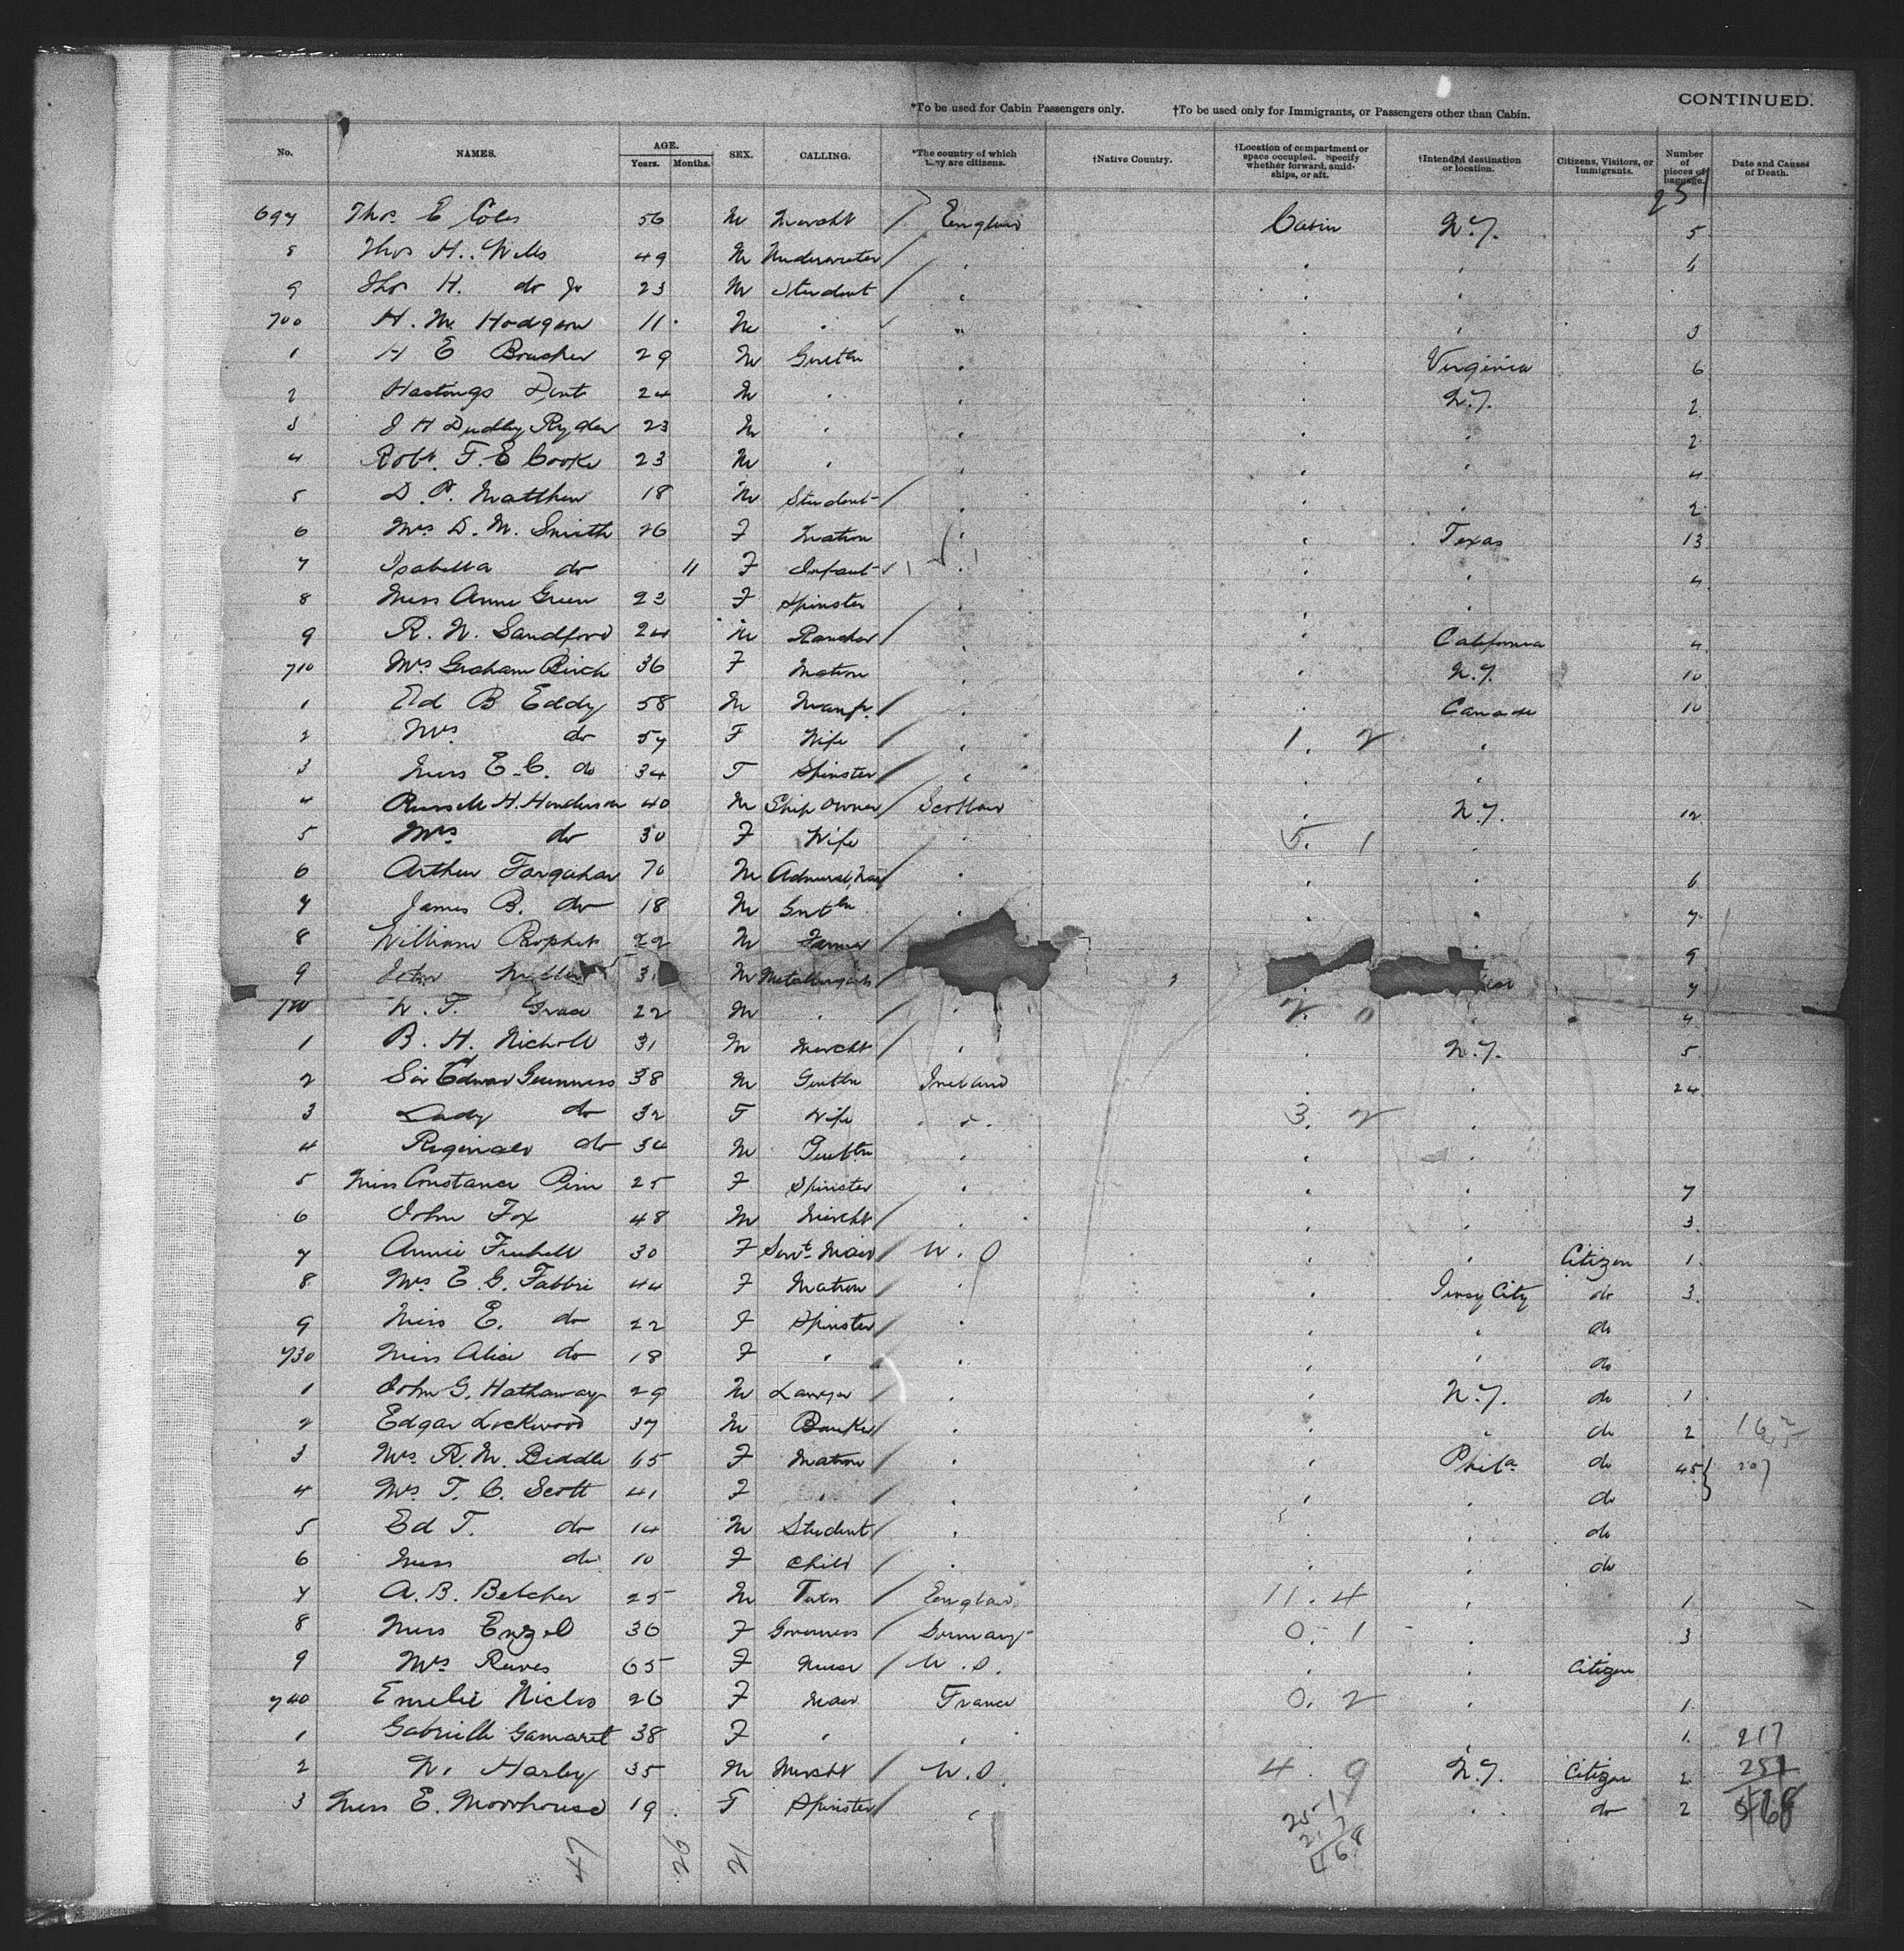 CONTINUED.
*To be used for Cabin Passengers only. †To be used only for Immigrants, or Passengers other than Cabin.
No. NAMES. AGE. Years. Months. SEX. CALLING. *The country of which they are citizens. †Native Country. †Location of compartment or space occupied. Specify whether forward, amidships, or aft. †Intended destination or location. Citizens, Visitors, or Immigrants. Number of pieces of baggage. Date and Causes of Death.
251
697 Thos E Coles 56 M Mercht / England Cabin N.Y. 5
8 Thos H. Wills 49 M Underwriter / " " "
9 Thos H. do Jr 23 M Student / " " "
700 H. M. Hodgson 11 M " " " " 3
1 H E Boucher 29 M Gentln " " Virginia 6
2 Hastings Dent 24 M " " " N.Y. 2
3 J H Dudley Ryder 23 M " " " " 2
4 Robt. F. E Cooke 23 M " " " " 4
5 D. P. Matthew 18 M Student / " " " 2
6 Mrs D. M. Smith 26 F Matron " " Texas 13
7 Isabella do 11 F Infant " " " 4
8 Miss Anne Green 23 F Spinster " " "
9 R. N. Sandford 24 M Rancher / " " California 4
710 Mrs Graham Birch 36 F Matron " " N.Y. 10
1 Ed B Eddy 58 M Manfr. / " " Canada 10
2 Mrs do 57 F Wife / " 1. 2 "
3 Miss E. C. do 34 F Spinster / " " "
4 Russell H. Henderson 40 M Ship owner / Scotland " N.Y. 12
5 Mrs do 30 F Wife " 5. 1 "
6 Arthur Farquhar 70 M Admiral, / " " " 6
7 James B. do 18 M Gentln " " " 7
8 William Prophet 22 M Farmer / " 9
9 John 3 M Metallurgist / 7
720 22 M " / " 2. 0 " 4
1 B. H. Nicholl 31 M Mercht / " " N.Y. 5
2 Sir Edward Guinness 38 M Gentln Ireland " " 24
3 Lady do 32 F Wife " 3. 2 "
4 Reginald do 34 M Gentln " " "
5 Miss Constance Pim 25 F Spinster " " " 7
6 John Fox 48 M Mercht / " " " 3
7 Annie 30 F Servt. Maid / U. S " " Citizen 1
8 Mrs E. G. Fabbri 44 F Matron / " " Jersey City do 3
9 Miss E. do 22 F Spinster / " " " do
730 Miss Alice do 18 F " / " " " do
1 John G. Hathaway 29 M Lawyer / " " N.Y. do 1
2 Edgar Lockwood 37 M Banker / " " " do 2
3 Mrs R. M. Biddle 65 F Matron / " " Phila do 45
4 Mrs T. C. Scott 41 F " / " " " do
5 Ed T. do 14 M Student / " " " do
6 Miss do 10 F Child / " " " do
7 A. B. Belcher 25 M Tutor / England 11. 4 " 1
8 Miss Engel 30 F Governess / Germany 0. 1 " 3
9 Mrs Reeves 65 F Nurse / U. S. " " Citizen
740 Emelie Nicles 26 F Maid France 0. 2 " 1
1 Gabrielle Gamaret 38 F " " " 1 217
2 N. Harby 35 M Mercht / U. S. 4. 9 N.Y. Citizen 2 251
3 Miss E. Moorhouse 19 F Spinster / " " do 2 468
47 26 21 251
217
468